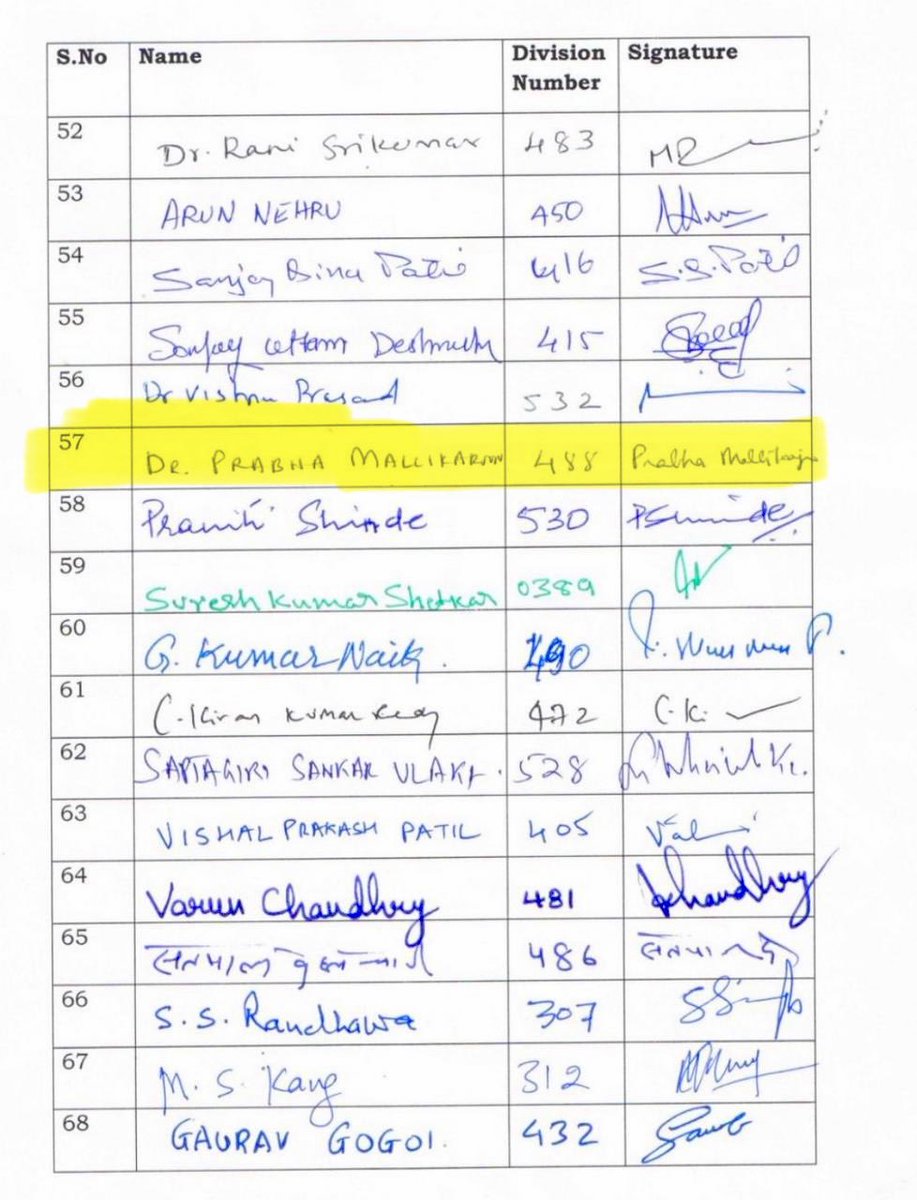 S.No Name Division Number Signature
52 Dr. Rani Srikumar 483 MR
53 ARUN NEHRU 450
54 Sanjay Dina Patil 416 S.S.Patil
55 Sanjay Uttam Deshmukh 415
56 Dr Vishnu Prasad 532
57 DR. PRABHA MALLIKARJUN 488 Prabha Mallikarjun
58 Praniti Shinde 530 PShinde
59 Suresh Kumar Shetkar 0389
60 G. Kumar Naik. 490
61 C. Kiran Kumar Reddy 472 C.K.
62 SAPTAGIRI SANKAR ULAKA. 528
63 VISHAL PRAKASH PATIL 405
64 Varun Chaudhry 481 Chaudhry
65 486
66 S.S. Randhawa 307
67 M. S. Kang 312
68 GAURAV GOGOI. 432